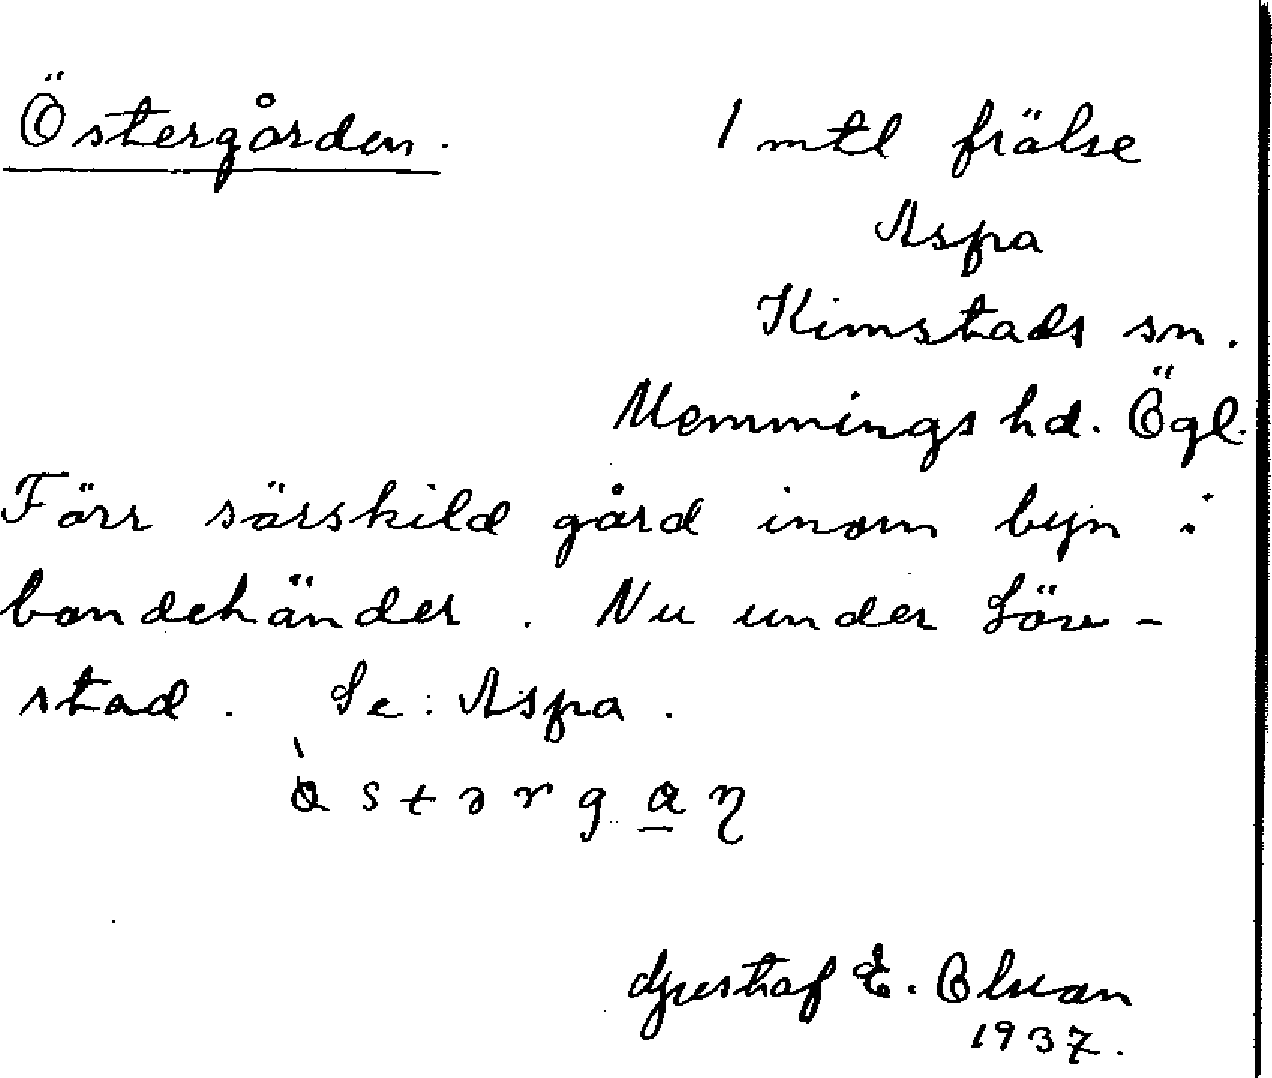 Östergården. 1 mtl frälse
Aspa
Kimstads sn.
Memmings hd. Ögl.
Förr särskild gård inom byn i
bondehänder. Nu under Löv-
stad. Se: Aspa.
Gustaf E. Olsson
1937.